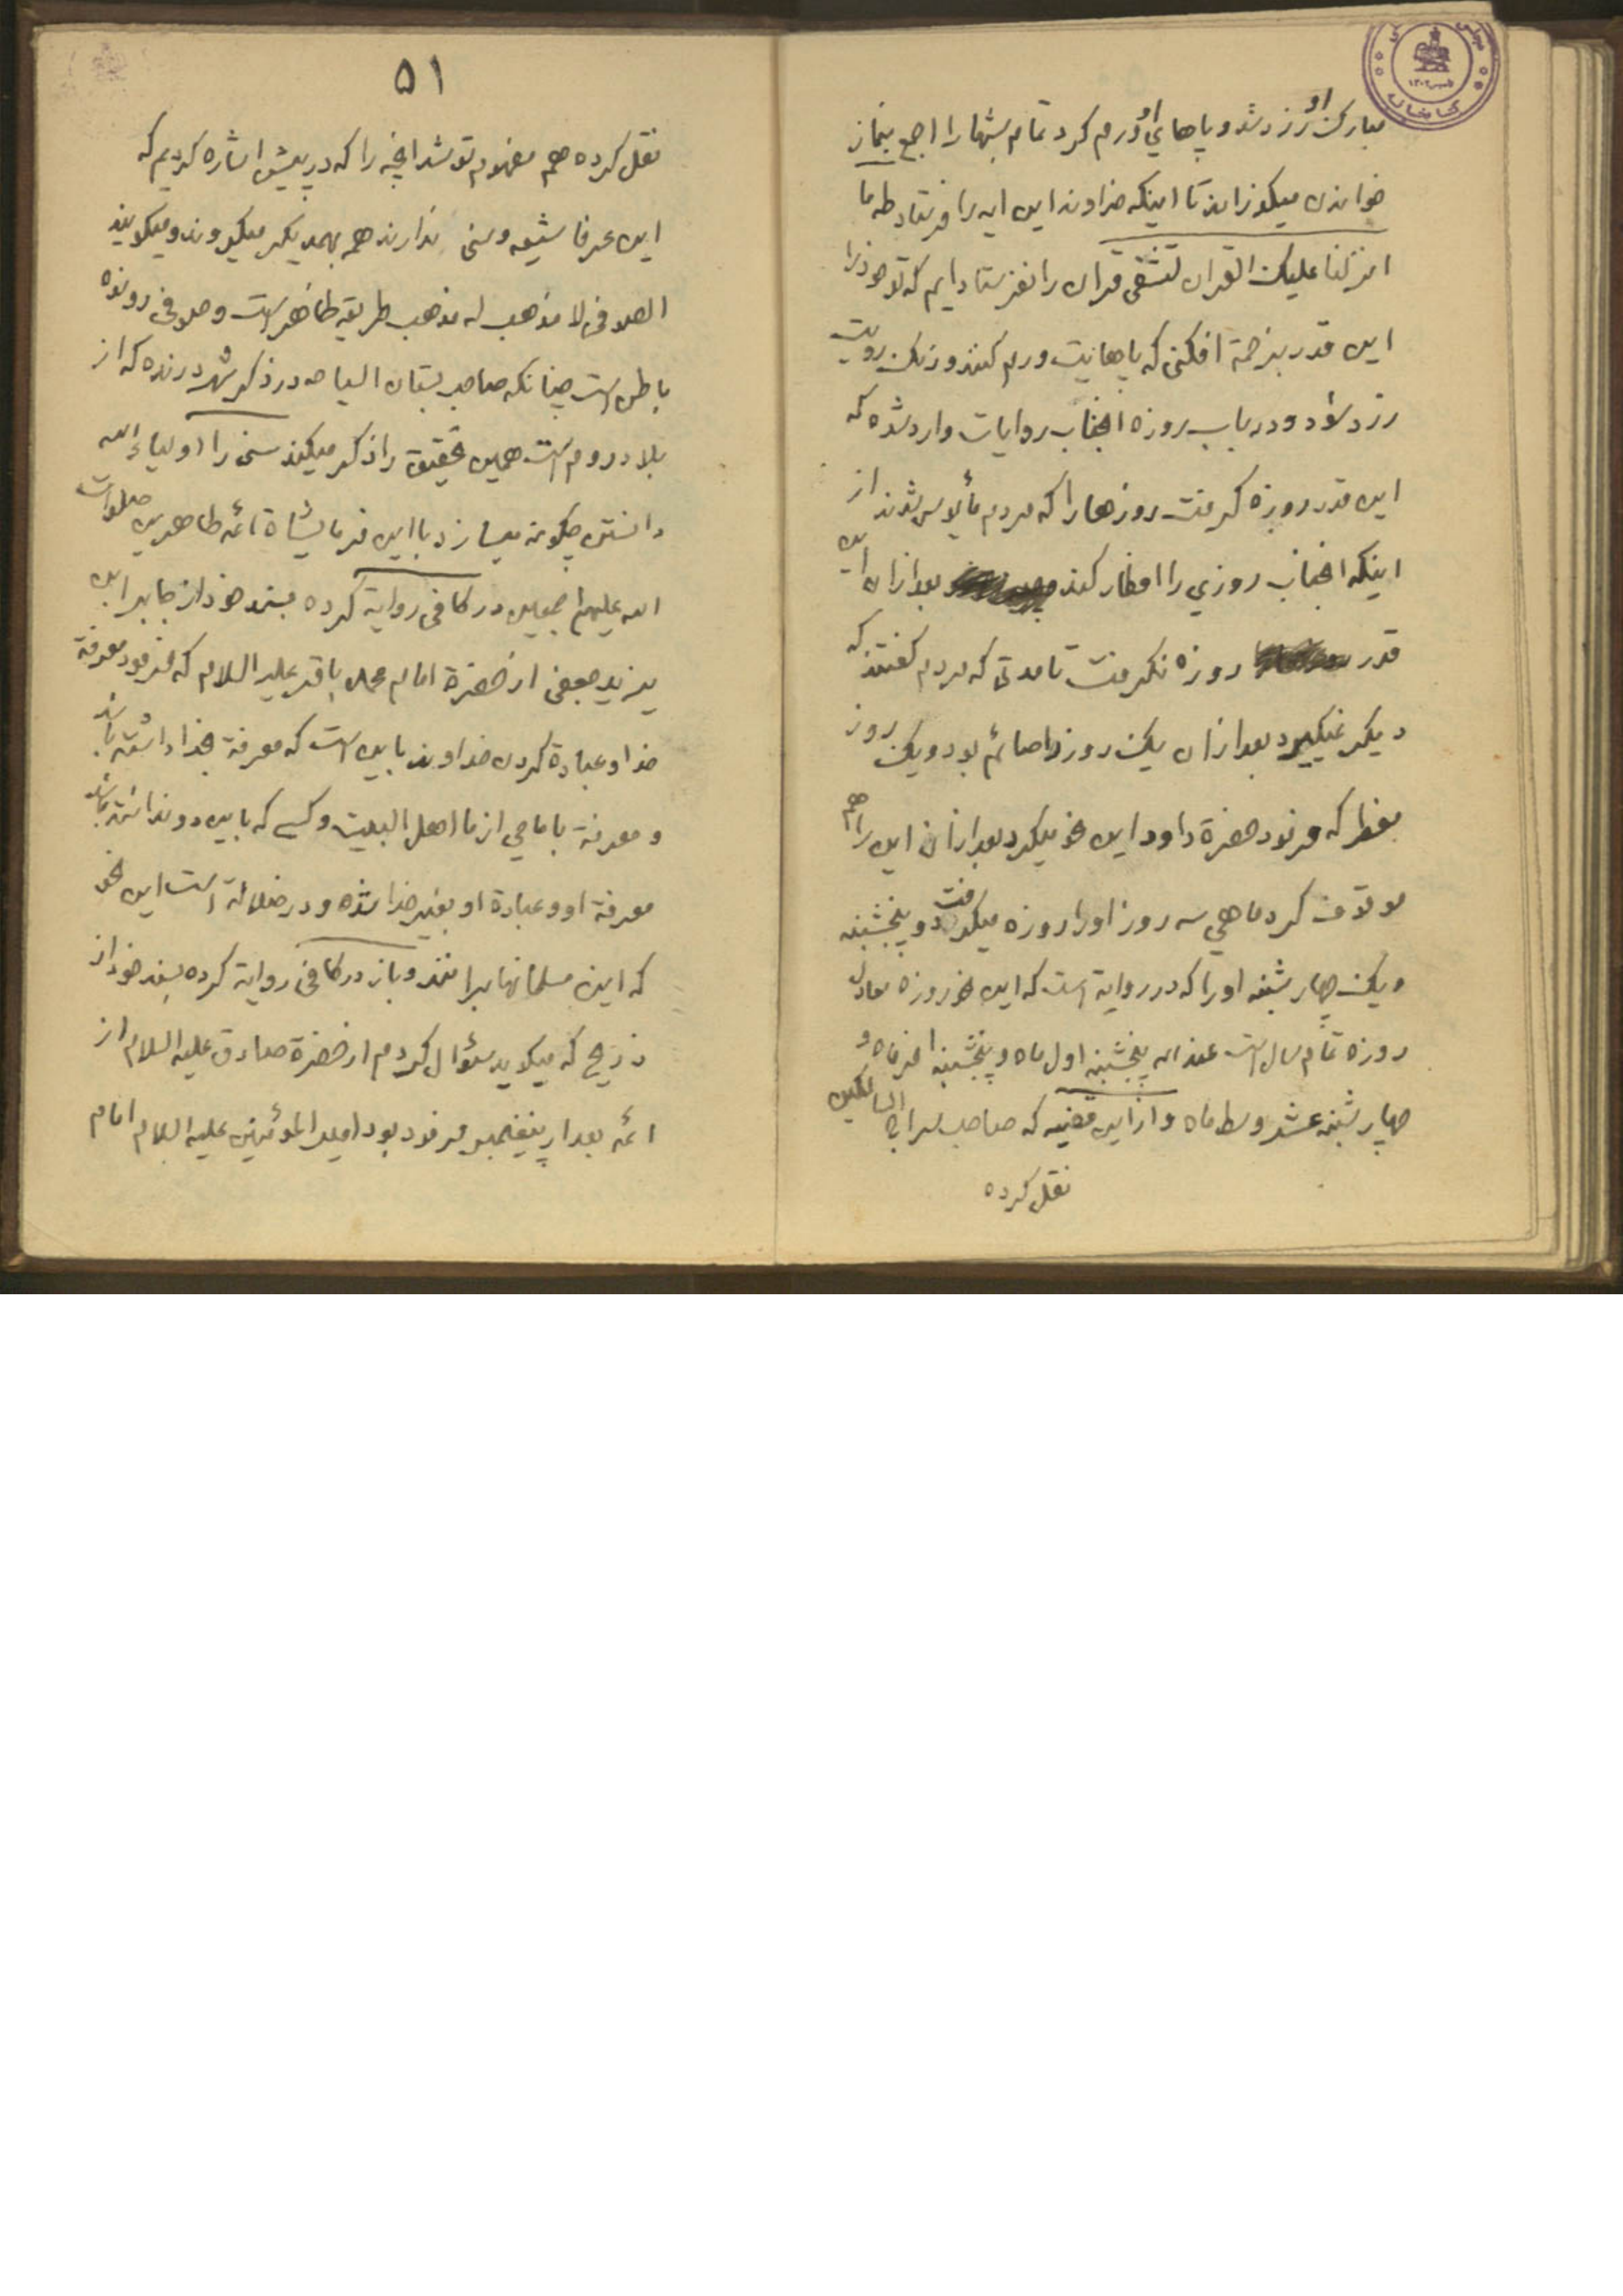 مبارک او زرد شد و پاهای او ورم کرد تمام شبها را اجمع بنماز
خواندن میکوزاند تا اینکه خداوند این ایه را فرستاد طه ما
انزلنا علیک القران لتشقی قران را نفرستادیم که تو خود را
این قدر بزحمة افکنی که پاهایت ورم کنند و رنک رویت
زرد شود و در باب روزه انجناب روایات وارد شده که
این قدر روزه کرفت روزها را که مردم مأیوس شدند از
اینکه انجناب روزی را افطار کند بعد از ان این
قدر روزه نکرفت تا مدتی که مردم کفتند که
دیکر نمیکیرد بعد از ان یک روز را صائم بود و یک روز
مفطر که فرمود حضرة داود این نحو میکرد بعد از ان این را هم
موقوف کرد ماهی سه روز او را روزه میکرفت دو پنجشنبه
و یک چهارشنبه او را که در روایة است که این نحو روزه معادل
روزه تمام سال است عند الله پنجشنبه اول ماه و پنجشنبه اخر ماه و
چهارشنبه عشر وسط ماه و از این قضیه که صاحب السالکین
نقل کرده
۵۱
نقل کرده هم مفهوم تو شد انچه را که در پیش اشاره کردیم که
این عرفا شیعه و سنی ندارند همه بهمدیکر میکروند و میکویند
الصوفی لا مذهب له مذهب طریقه ظاهر است و صوفی رونده
باطن است چنانکه صاحب بستان السیاحه در ذکر شهر درنده که از
بلاد روم است همین تحقیق را ذکر میکند سنی را اولیاء الله
دانستن چکونه میسازد با این فرمایشاة ائمه طاهرین صلوات
الله علیهم اجمعین در کافی روایة کرده بسند خود از جابر ابن
یزید جعفی از حضرة امام محمد باقر علیه السلام که فرمود معرفة
خدا و عبادة کردن خداوند باین است که معرفة بخدا داشته باشد
و معرفة بامامی از ما اهل البیت و کسی که باین دو نداشته باشد
معرفة او و عبادة او بغیر خدا شده و در ضلالة است این نحو
که این مسلمانها برانند و باز در کافی روایة کرده بسند خود از
ذریح که میکوید سئوال کردم از حضرة صادق علیه السلام از
ائمه بعد از پیغمبر فرمود بود امیر المؤمنین علیه السلام امام